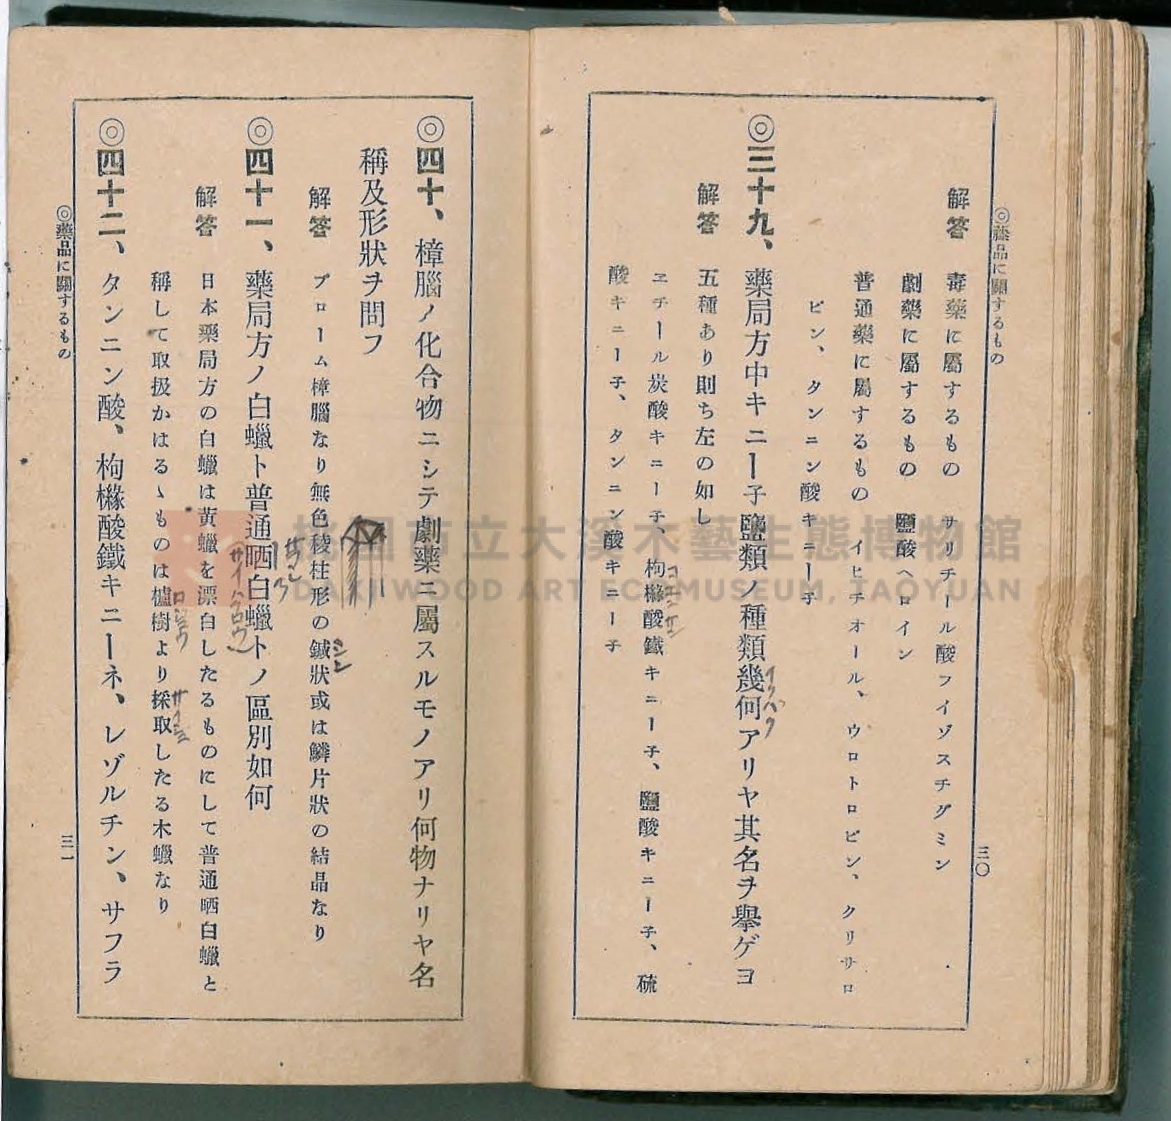 ◎藥品に關するもの
三〇
解答 毒藥に屬するもの サリチール酸フイゾスチグミン
劇藥に屬するもの 鹽酸ヘロイン
普通藥に屬するもの イヒチオール、ウロトロピン、クリサロ
ビン、タンニン酸キニー子
◎三十九、藥局方中キニー子鹽類ノ種類幾何アリヤ其名ヲ擧ゲヨ
解答 五種あり則ち左の如し
エチール炭酸キニー子、枸櫞酸鐵キニー子、鹽酸キニー子、硫
酸キニー子、タンニン酸キニー子
◎四十、樟腦ノ化合物ニシテ劇藥ニ屬スルモノアリ何物ナリヤ名
稱及形狀ヲ問フ
解答 ブローム樟腦なり無色稜柱形の鍼狀或は鱗片狀の結晶なり
シン
◎四十一、藥局方ノ白蠟ト普通晒白蠟トノ區別如何
解答 日本藥局方の白蠟は黃蠟を漂白したるものにして普通晒白蠟と
稱して取扱かはるゝものは櫨樹より採取したる木蠟なり
◎四十二、タンニン酸、枸櫞酸鐵キニーネ、レゾルチン、サフラ
◎藥品に關するもの
三一
桃園市立大溪木藝生態博物館
DAXI WOOD ART ECOMUSEUM, TAOYUAN